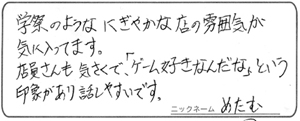 学祭のようなにぎやかな店の雰囲気が
気に入ってます。
店員さんも気さくで、「ゲーム好きなんだな」という
印象があり話しやすいです。
ニックネーム めたむ